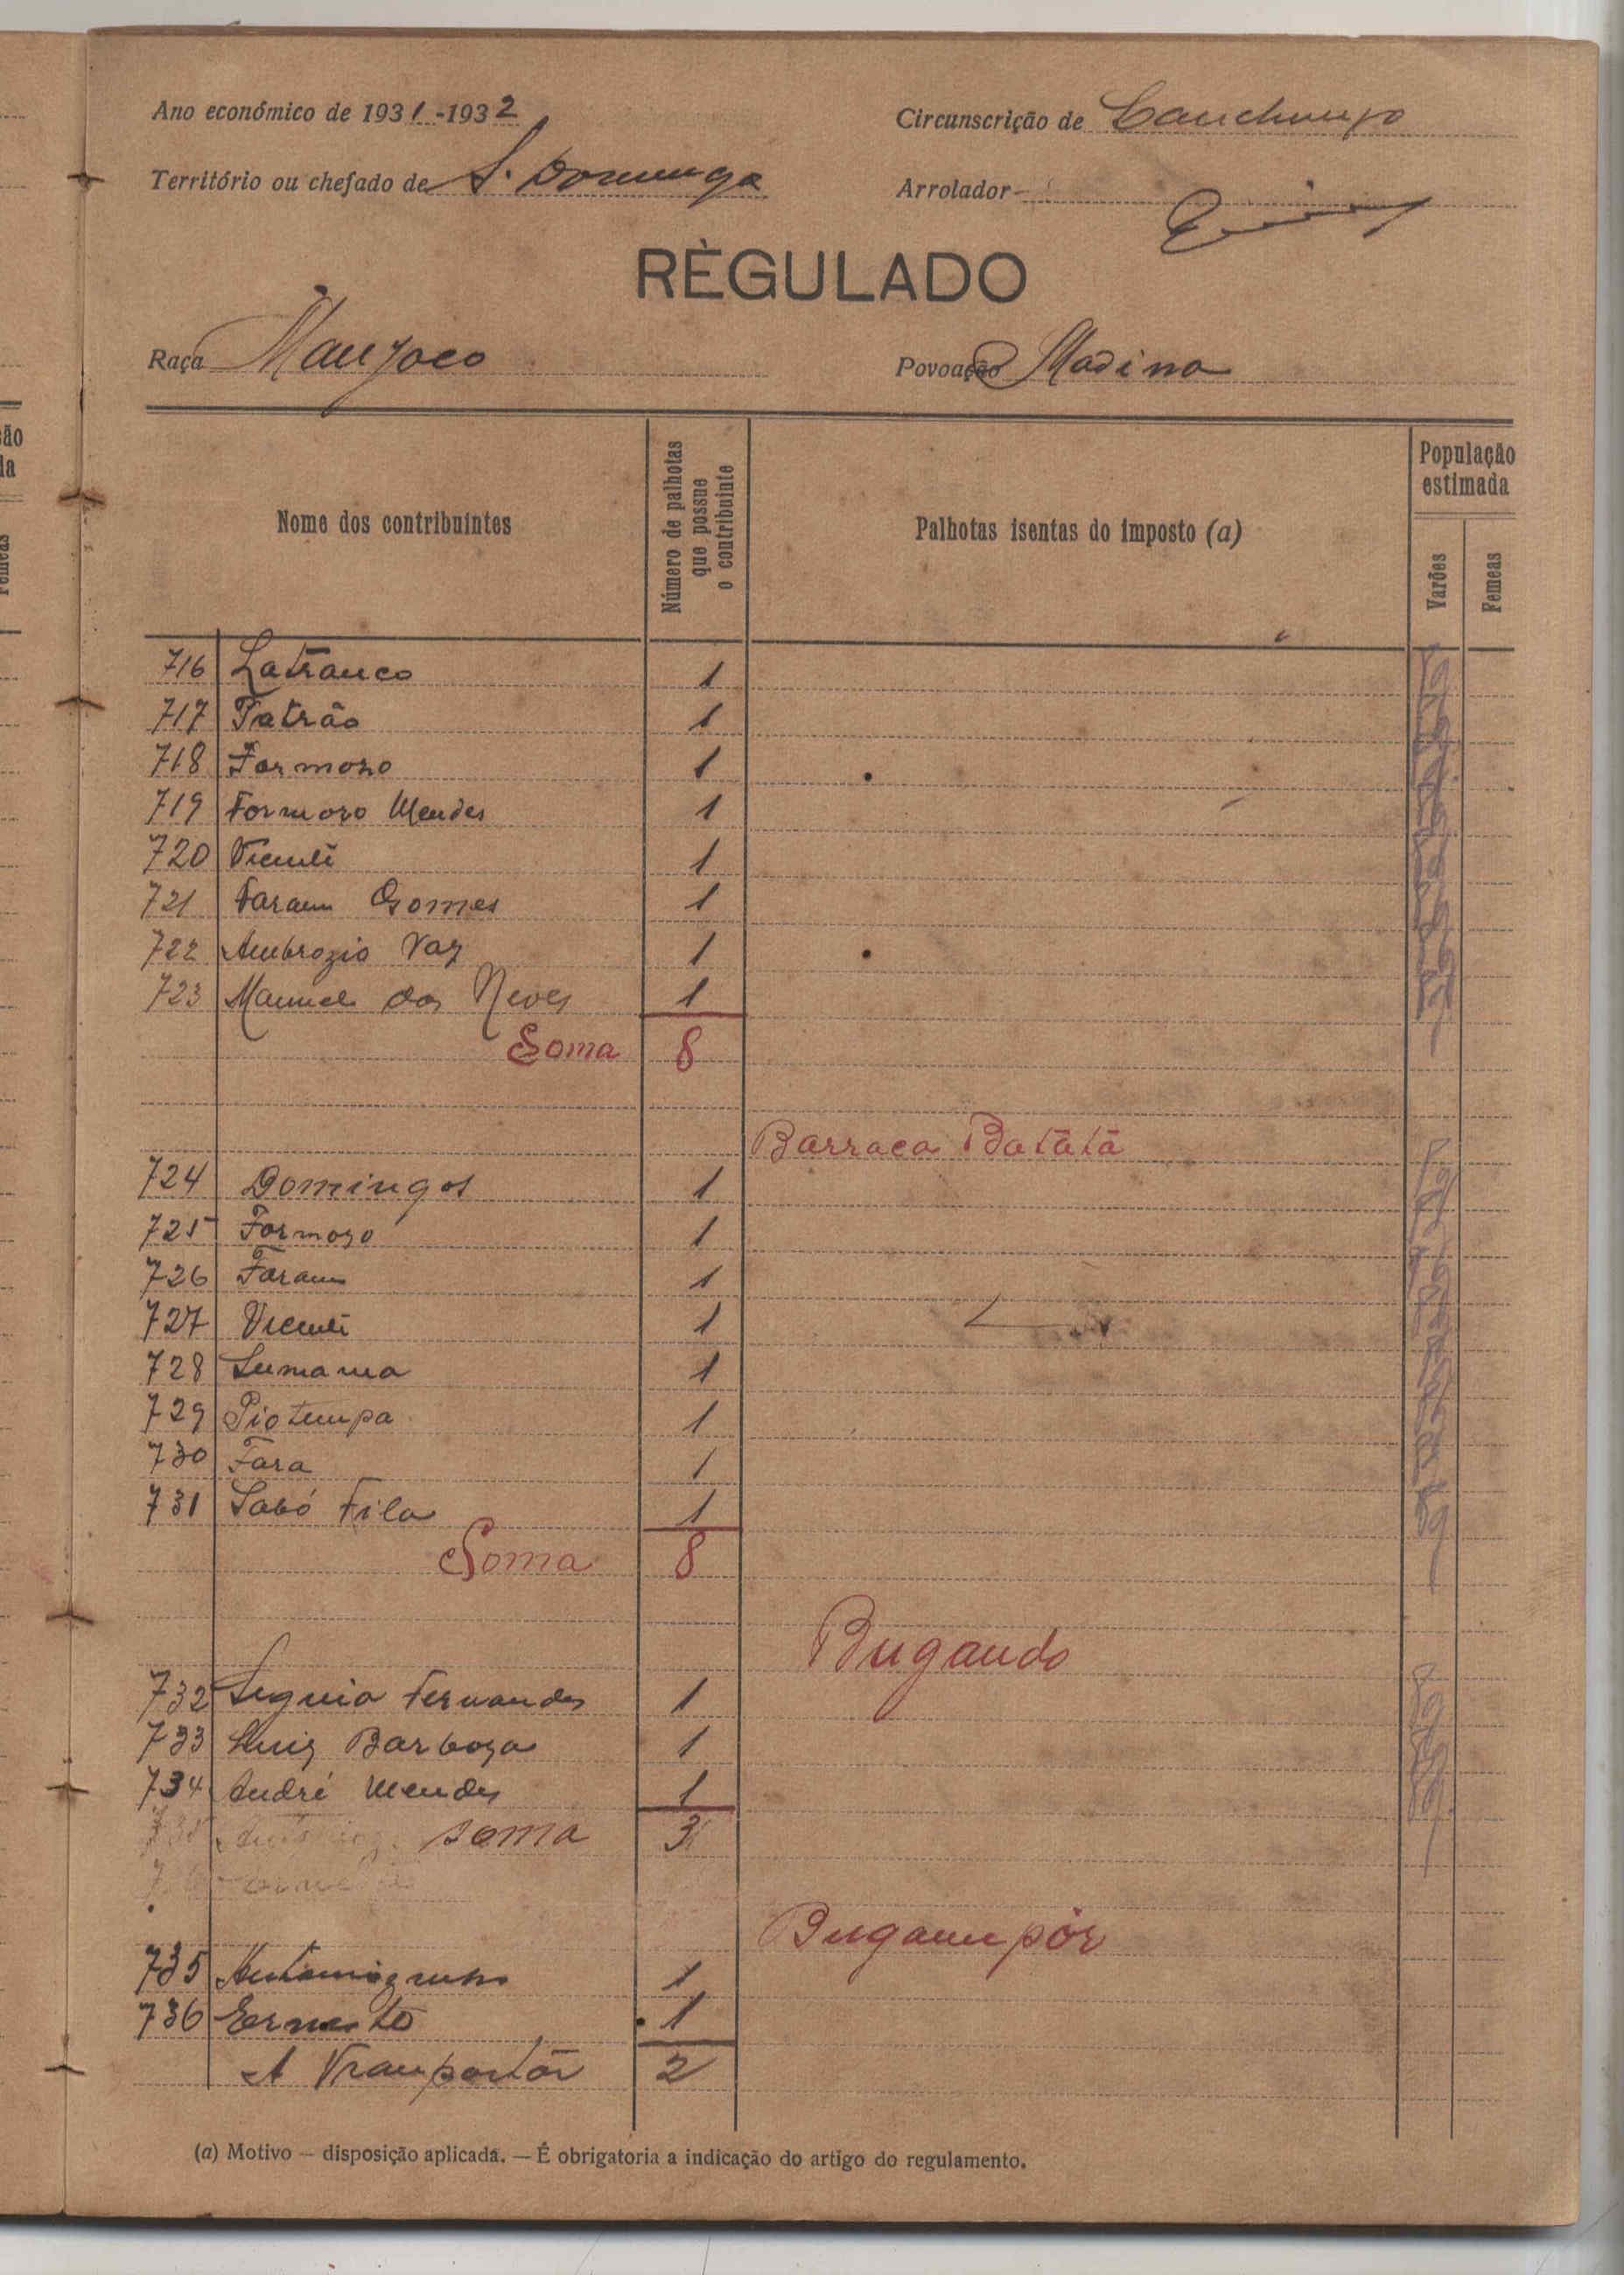 Ano económico de 1931-1932
Circunscrição de Canchungo
Território ou chefado de S. Domingos
Arrolador
RÈGULADO
Raça Manjaco
Povoação Madina
Nome dos contribuintes
Número de palhotas que possue o contribuinte
Palhotas isentas do imposto (a)
População estimada
Varões
Femeas
716 Latranco 1
717 Patrão 1
718 Formozo 1
719 Formozo Mendes 1
720 Vicenti 1
721 Faram Gomes 1
722 Ambrozio Vaz 1
723 Manuel das Neves 1
Soma 8
Barraca Batátá
724 Domingos 1
725 Formozo 1
726 Faram 1
727 Vicenti 1
728 Sumana 1
729 Piotempa 1
730 Fara 1
731 Sabó Fila 1
Soma 8
Bugando
732 Fernandes 1
733 Luiz Barboza 1
734 André Mendes 1
soma 3
Bugampór
735 1
736 Ernesto 1
A Transportár 2
(a) Motivo — disposição aplicada. — É obrigatoria a indicação do artigo do regulamento.